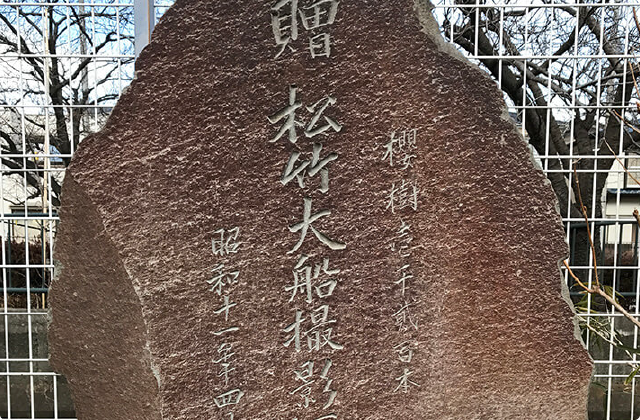 櫻樹壹千貳百本
贈 松竹大船撮影
昭和十一年四